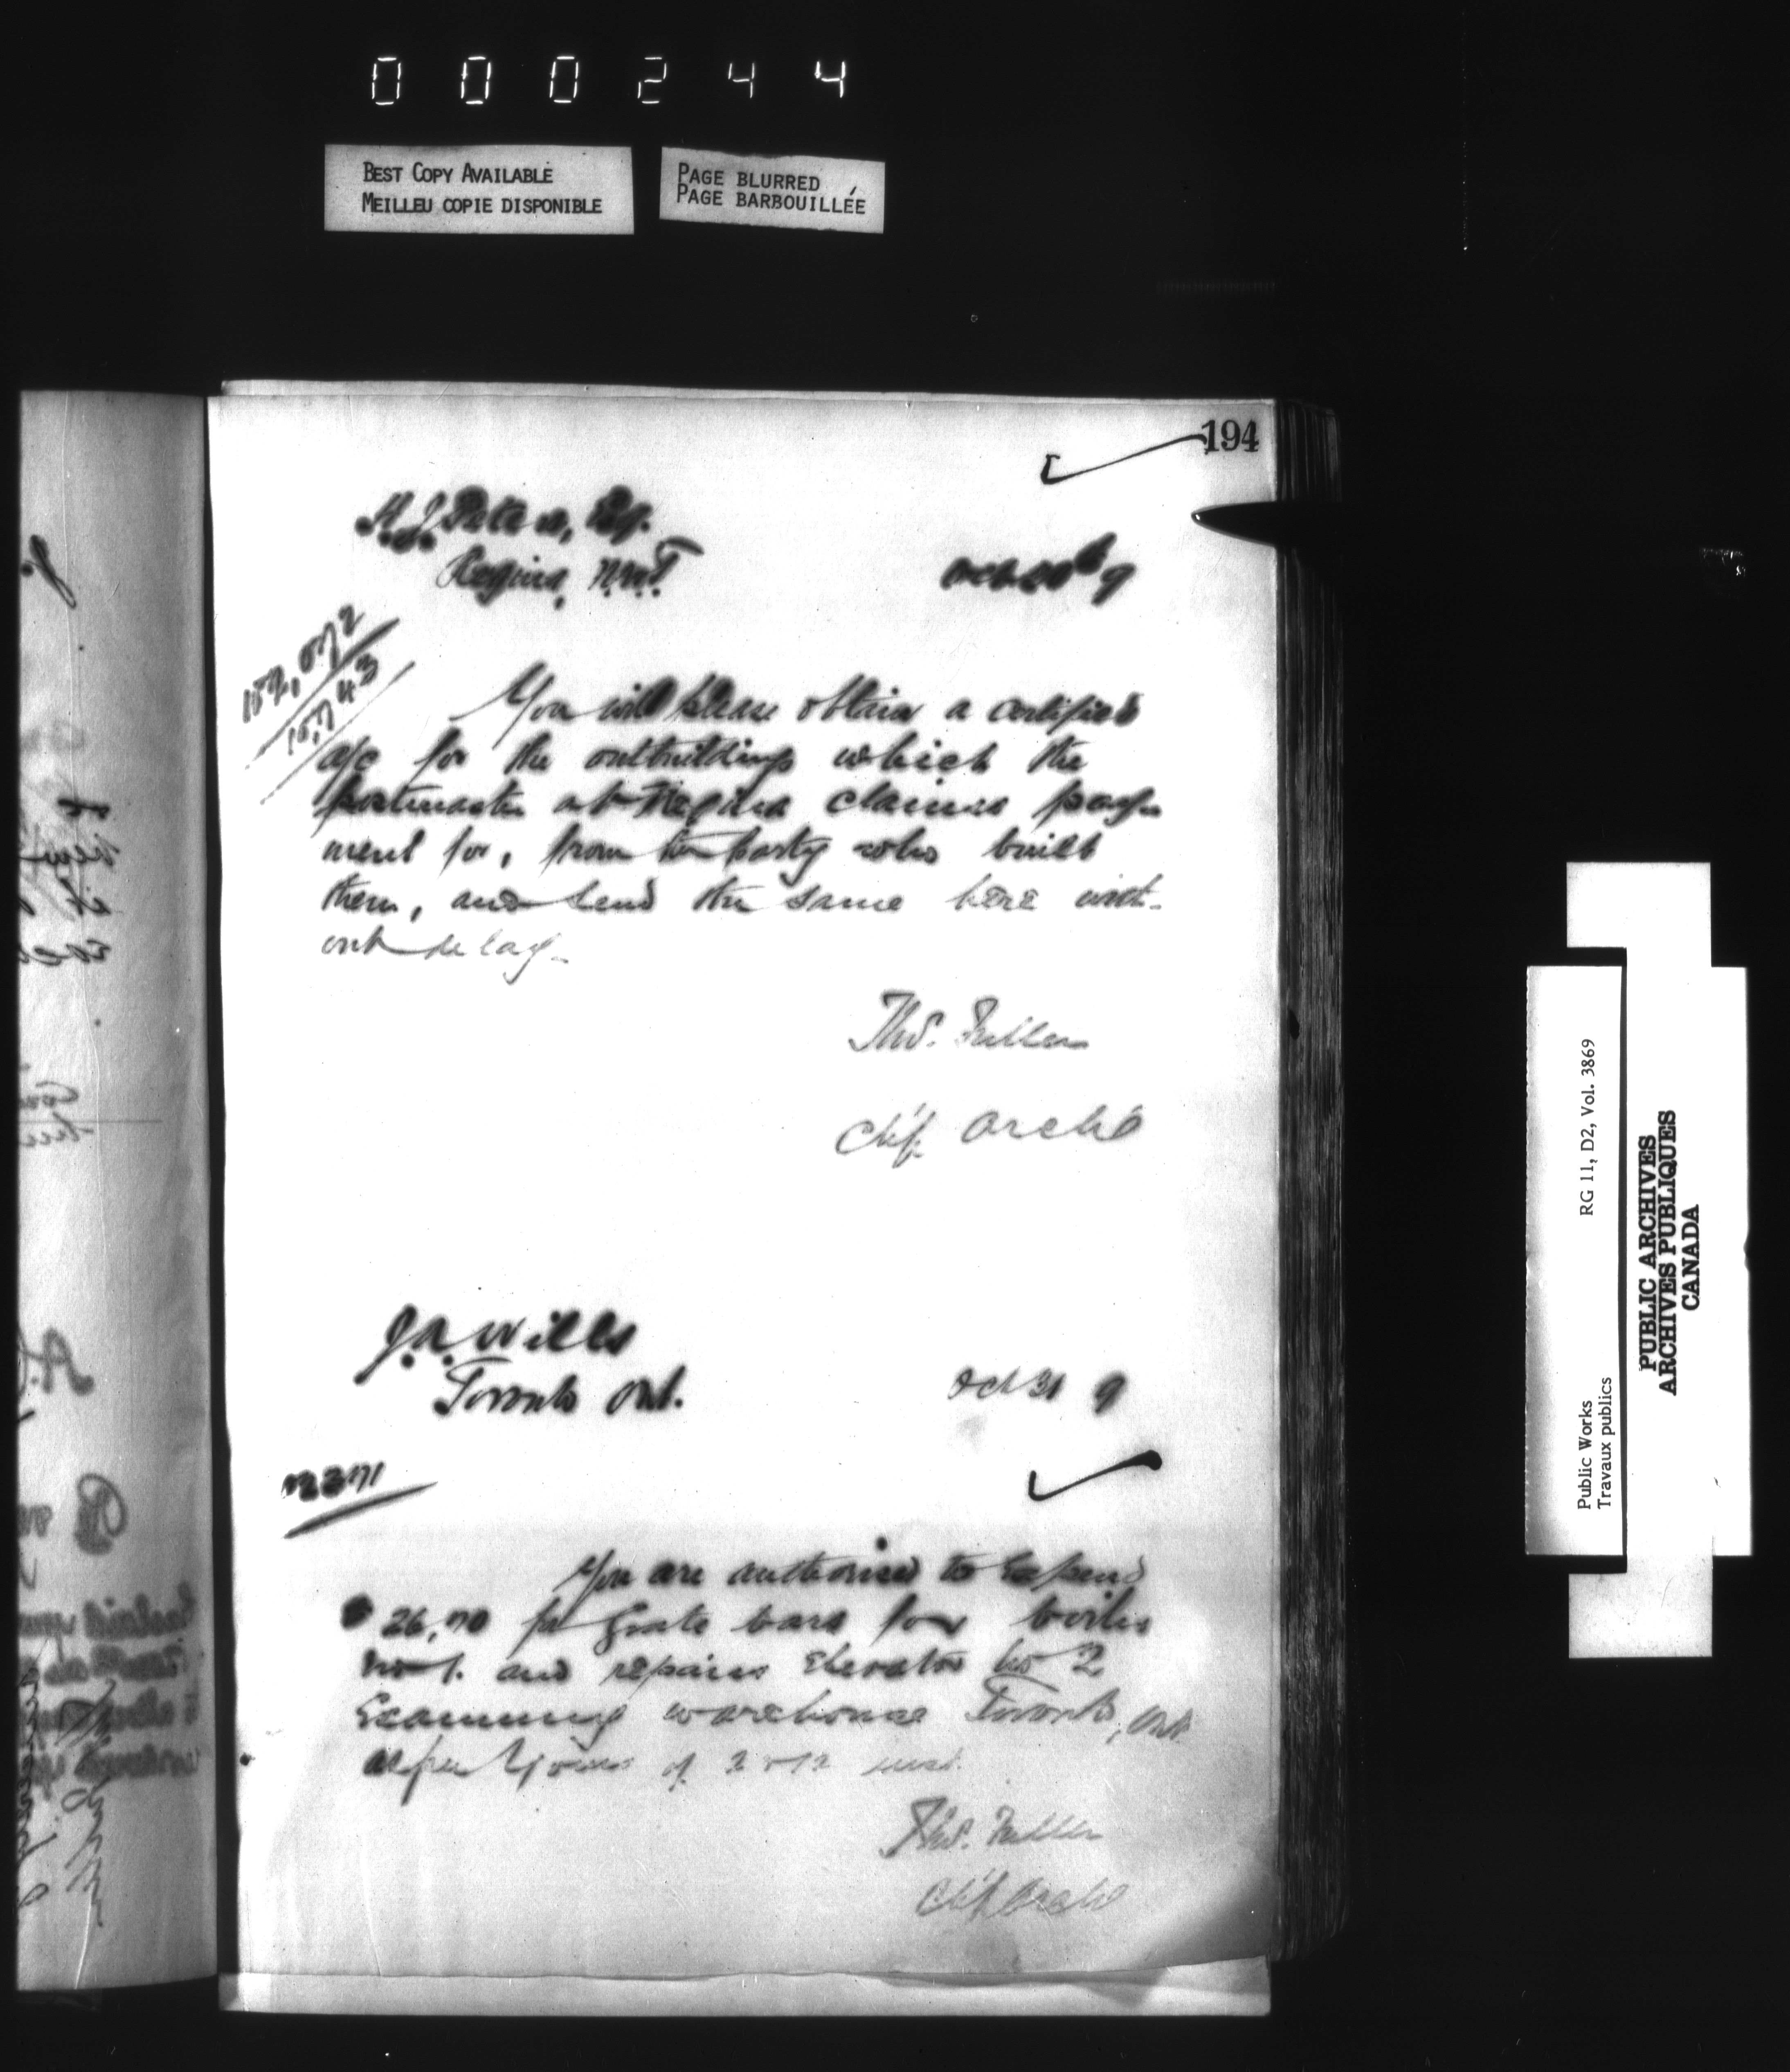 000244
BEST COPY AVAILABLE
MEILLEU COPIE DISPONIBLE
PAGE BLURRED
PAGE BARBOUILLÉE
194
Regina, N.W.T.
Oct 9
152,072
15,743
You will please obtain a certified
a/c for the outbuildings which the
postmaster at Regina claims pay-
ment for, from the party who built
them, and send the same here with-
out delay.
Thos. Fuller
Chf. Archt
J.A. Wills
Toronto Ont.
Oct 31 9
You are authorised to Expend
26.70 for Grate bars for boiler
No 1. and repairs Elevator No 2
Examining warehouse Toronto, Ont.
as per yours of inst.
Thos. Fuller
Chf Archt
RG 11, D2, Vol. 3869
Public Works
Travaux publics
PUBLIC ARCHIVES
ARCHIVES PUBLIQUES
CANADA